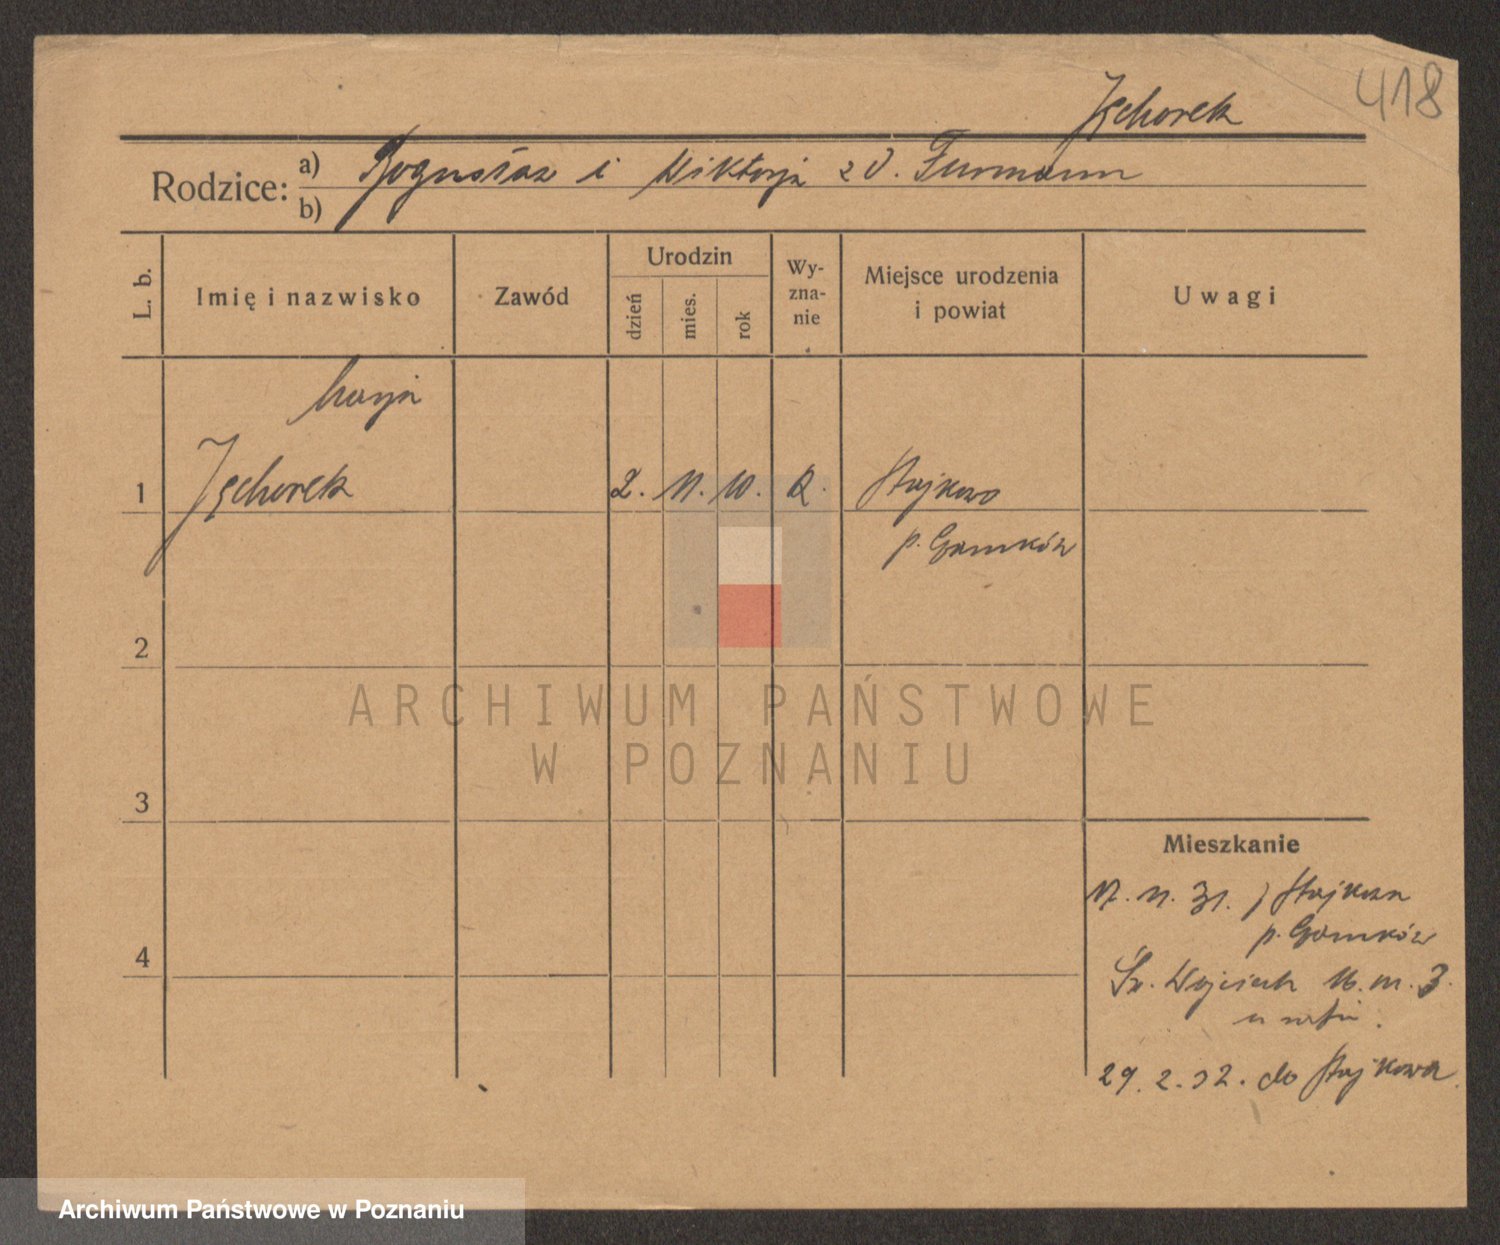 418
Jęchorek
Rodzice: a) Bogusław i Wiktorja z d. Furmann
b)
L. b. Imię i nazwisko Zawód Urodzin dzień mies. rok Wy-zna-nie Miejsce urodzenia i powiat Uwagi
Marja
1 Jęchorek 2. 11. 10. R. Stajkowo
p. Czarnków
2
3
4
Mieszkanie
17. 11. 31. z Stajkowa
p. Czarnków
Św. Wojciech 16. m. 3.
29. 2. 32. do Stajkowa
ARCHIWUM PAŃSTWOWE
W POZNANIU
Archiwum Państwowe w Poznaniu